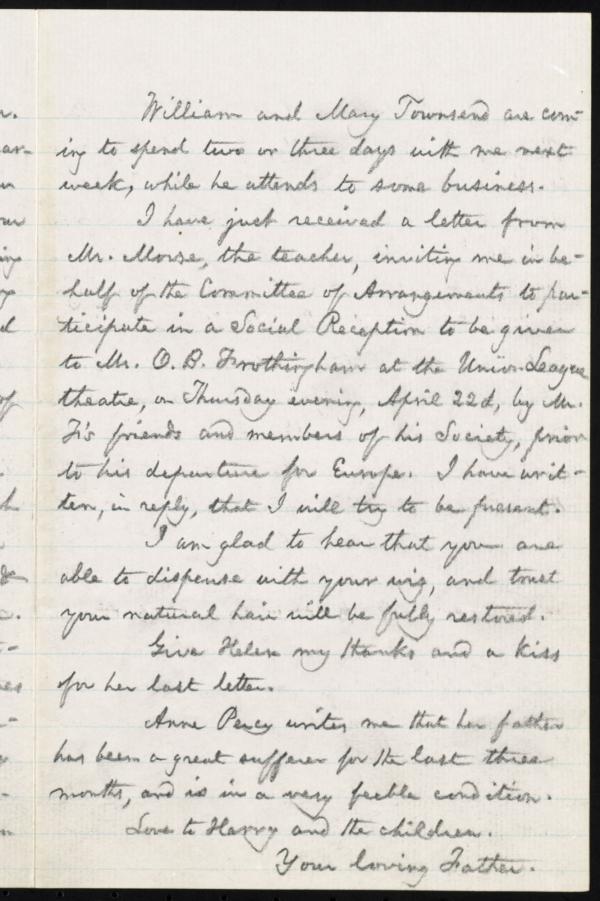 William and Mary Townsend are com-
ing to spend two or three days with me next
week, while he attends to some business.
I have just received a letter from
Mr. Morse, the teacher, inviting me in be-
half of the Committee of Arrangements to par-
ticipate in a Social Reception to be given
to Mr. O. B. Frothingham at the Union League
theatre, on Thursday evening, April 22d, by Mr.
F.'s friends and members of his Society, prior
to his departure for Europe. I have writ-
ten, in reply, that I will try to be present.
I am glad to hear that you are
able to dispense with your wig, and trust
your natural hair will be fully restored.
Give Helen my thanks and a kiss
for her last letter.
Anne Percy writes me that her father
has been a great sufferer for the last three
months, and is in a very feeble condition.
Love to Harry and the children.
Your loving Father.